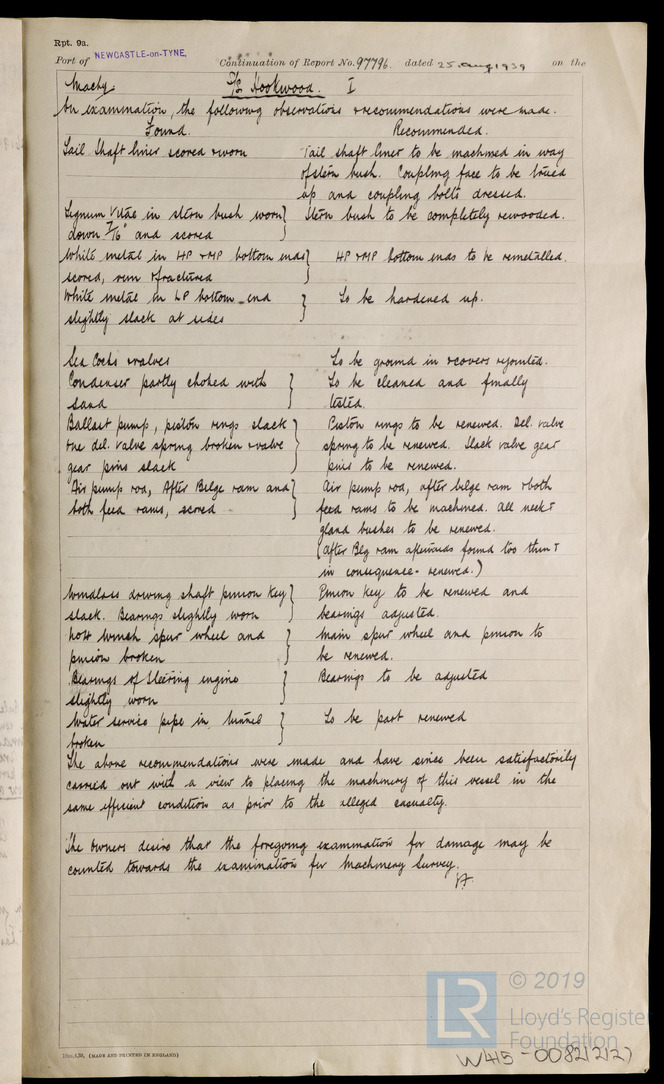 Rpt. 9a.
Port of NEWCASTLE-on-TYNE. Continuation of Report No. 97796. dated 25. Aug 1939 on the
Machy. S/S Hookwood. I
On examination, the following observations & recommendations were made.
Found. Recommended.
Tail Shaft liner scored & worn Tail shaft liner to be machined in way
of stern bush. Coupling face to be trued
up and coupling bolts dressed.
Lignum Vitae in stern bush worn } Stern bush to be completely rewooded.
down 7/16" and scored
White metal in HP & MP bottom ends } HP & MP bottom ends to be remetalled.
scored, run & fractured
White metal in LP bottom end } To be hardened up.
slightly slack at sides
Sea Cocks & valves To be ground in & covers rejointed.
Condenser partly choked with } To be cleaned and finally
sand tested.
Ballast pump, piston rings slack } Piston rings to be renewed. Del. valve
one del. valve spring broken & valve spring to be renewed. Slack valve gear
gear pins slack pins to be renewed.
Air pump rod, After Bilge ram and } Air pump rod, after bilge ram & both
both feed rams, scored feed rams to be machined. All neck &
gland bushes to be renewed.
(After Blg ram afterwards found too thin &
in consequence - renewed.)
Windlass driving shaft pinion key } Pinion key to be renewed and
slack. Bearings slightly worn bearings adjusted.
No 4 winch spur wheel and } Main spur wheel and pinion to
pinion broken be renewed.
Bearings of Steering engine } Bearings to be adjusted
slightly worn
Water service pipe in tunnel } To be part renewed
broken
The above recommendations were made and have since been satisfactorily
carried out with a view to placing the machinery of this vessel in the
same efficient condition as prior to the alleged casualty.
The owners desire that the foregoing examination for damage may be
counted towards the examination for Machinery Survey.
(MADE AND PRINTED IN ENGLAND)
LR © 2019
Lloyd's Register
Foundation
W415-0082(2/2)